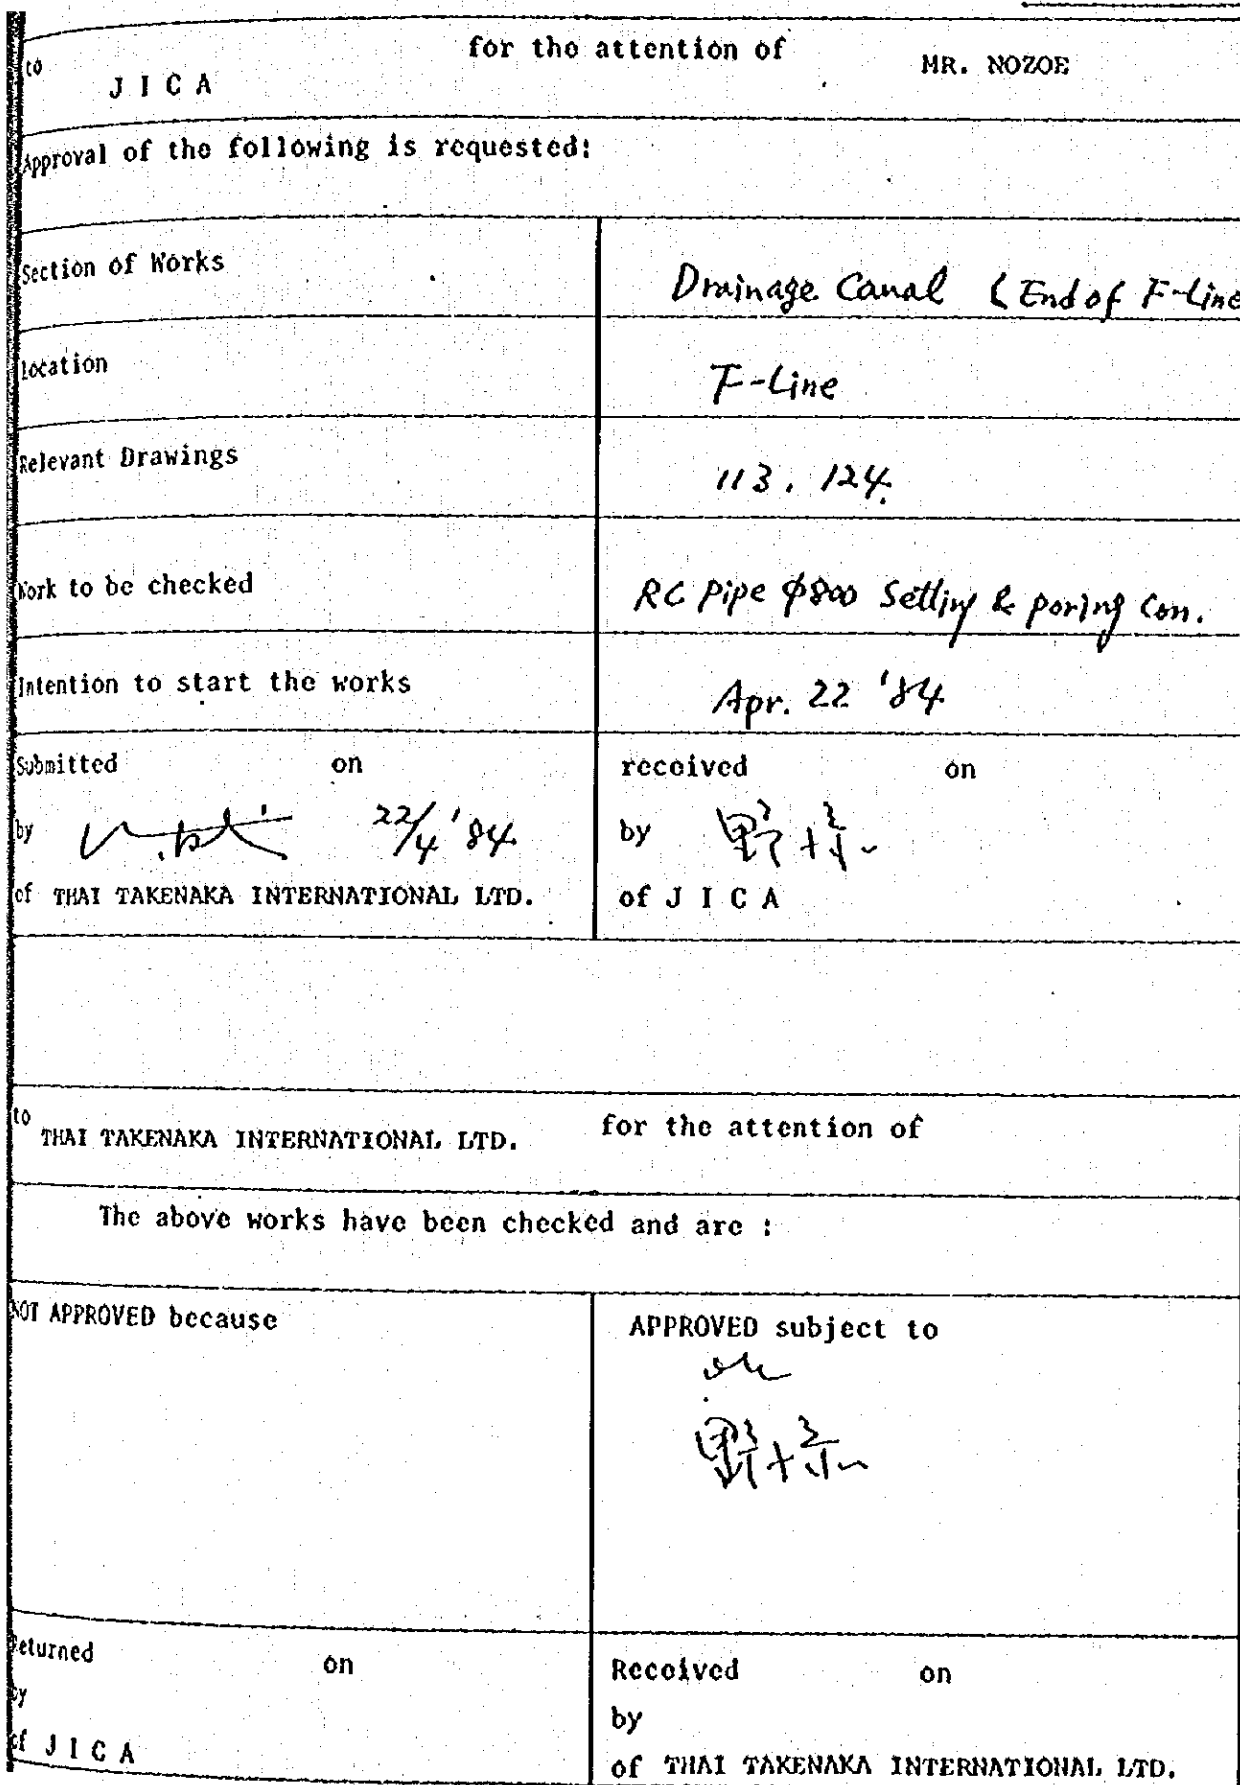 to J I C A for the attention of MR. NOZOE
Approval of the following is requested:
Section of Works Drainage Canal (End of F-Line
Location F-Line
Relevant Drawings 113. 124.
Work to be checked RC Pipe φ800 Setting & poring Con.
Intention to start the works Apr. 22 '84
Submitted on
by 22/4 '84
of THAI TAKENAKA INTERNATIONAL LTD.
received on
by 野添
of J I C A
to THAI TAKENAKA INTERNATIONAL LTD. for the attention of
The above works have been checked and are :
NOT APPROVED because
APPROVED subject to
ok
野添
Returned on
by
of J I C A
Received on
by
of THAI TAKENAKA INTERNATIONAL LTD.